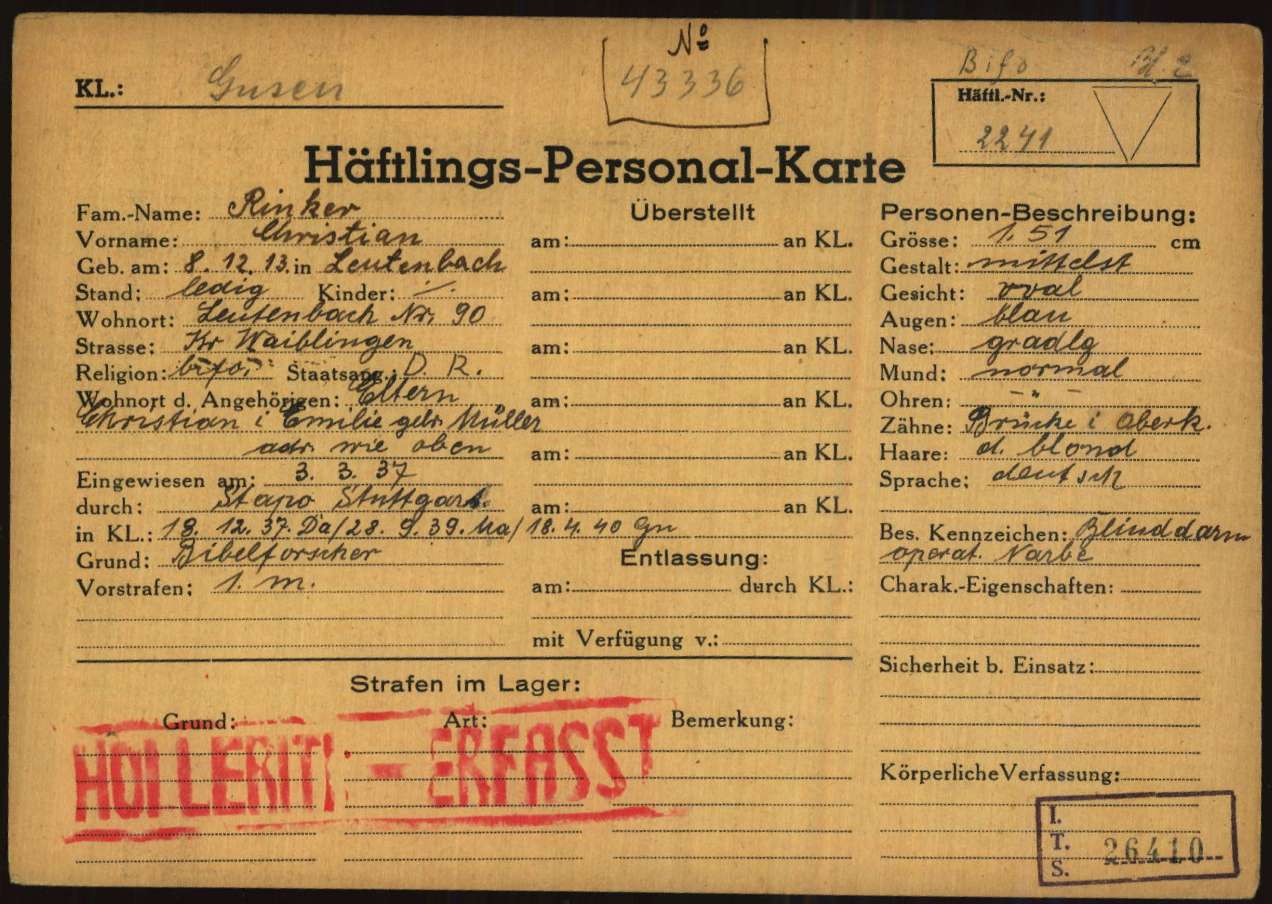 Nº
43336
KL.: Gusen
Bifo Bl. 2
Häftl.-Nr.:
2241
Häftlings-Personal-Karte
Fam.-Name: Rinker
Vorname: Christian
Geb. am: 8. 12. 13. in Leutenbach
Stand: ledig Kinder: ./.
Wohnort: Leutenbach Nr. 90
Strasse: Kr Waiblingen
Religion: bifo. Staatsang.: D. R.
Wohnort d. Angehörigen: Eltern
Christian i Emilie geb. Müller
adr. wie oben
Eingewiesen am: 3. 3. 37
durch: Stapo Stuttgart.
in KL.: 19. 12. 37. Da/28. 9. 39. Ma/18. 4. 40 Gu
Grund: Bibelforscher
Vorstrafen: 1. m.
Überstellt
am: an KL.
am: an KL.
am: an KL.
am: an KL.
am: an KL.
am: an KL.
Entlassung:
am: durch KL.:
mit Verfügung v.:
Personen-Beschreibung:
Grösse: 1. 51 cm
Gestalt: mittelst
Gesicht: oval
Augen: blau
Nase: gradlg
Mund: normal
Ohren: - " -
Zähne: Brücke i Oberk.
Haare: d. blond
Sprache: deutsch
Bes. Kennzeichen: Blinddarm
operat. Narbe
Charak.-Eigenschaften:
Sicherheit b. Einsatz:
Körperliche Verfassung:
Strafen im Lager:
Grund: Art: Bemerkung:
HOLLERITH - ERFASST
I.
T. 26410
S.